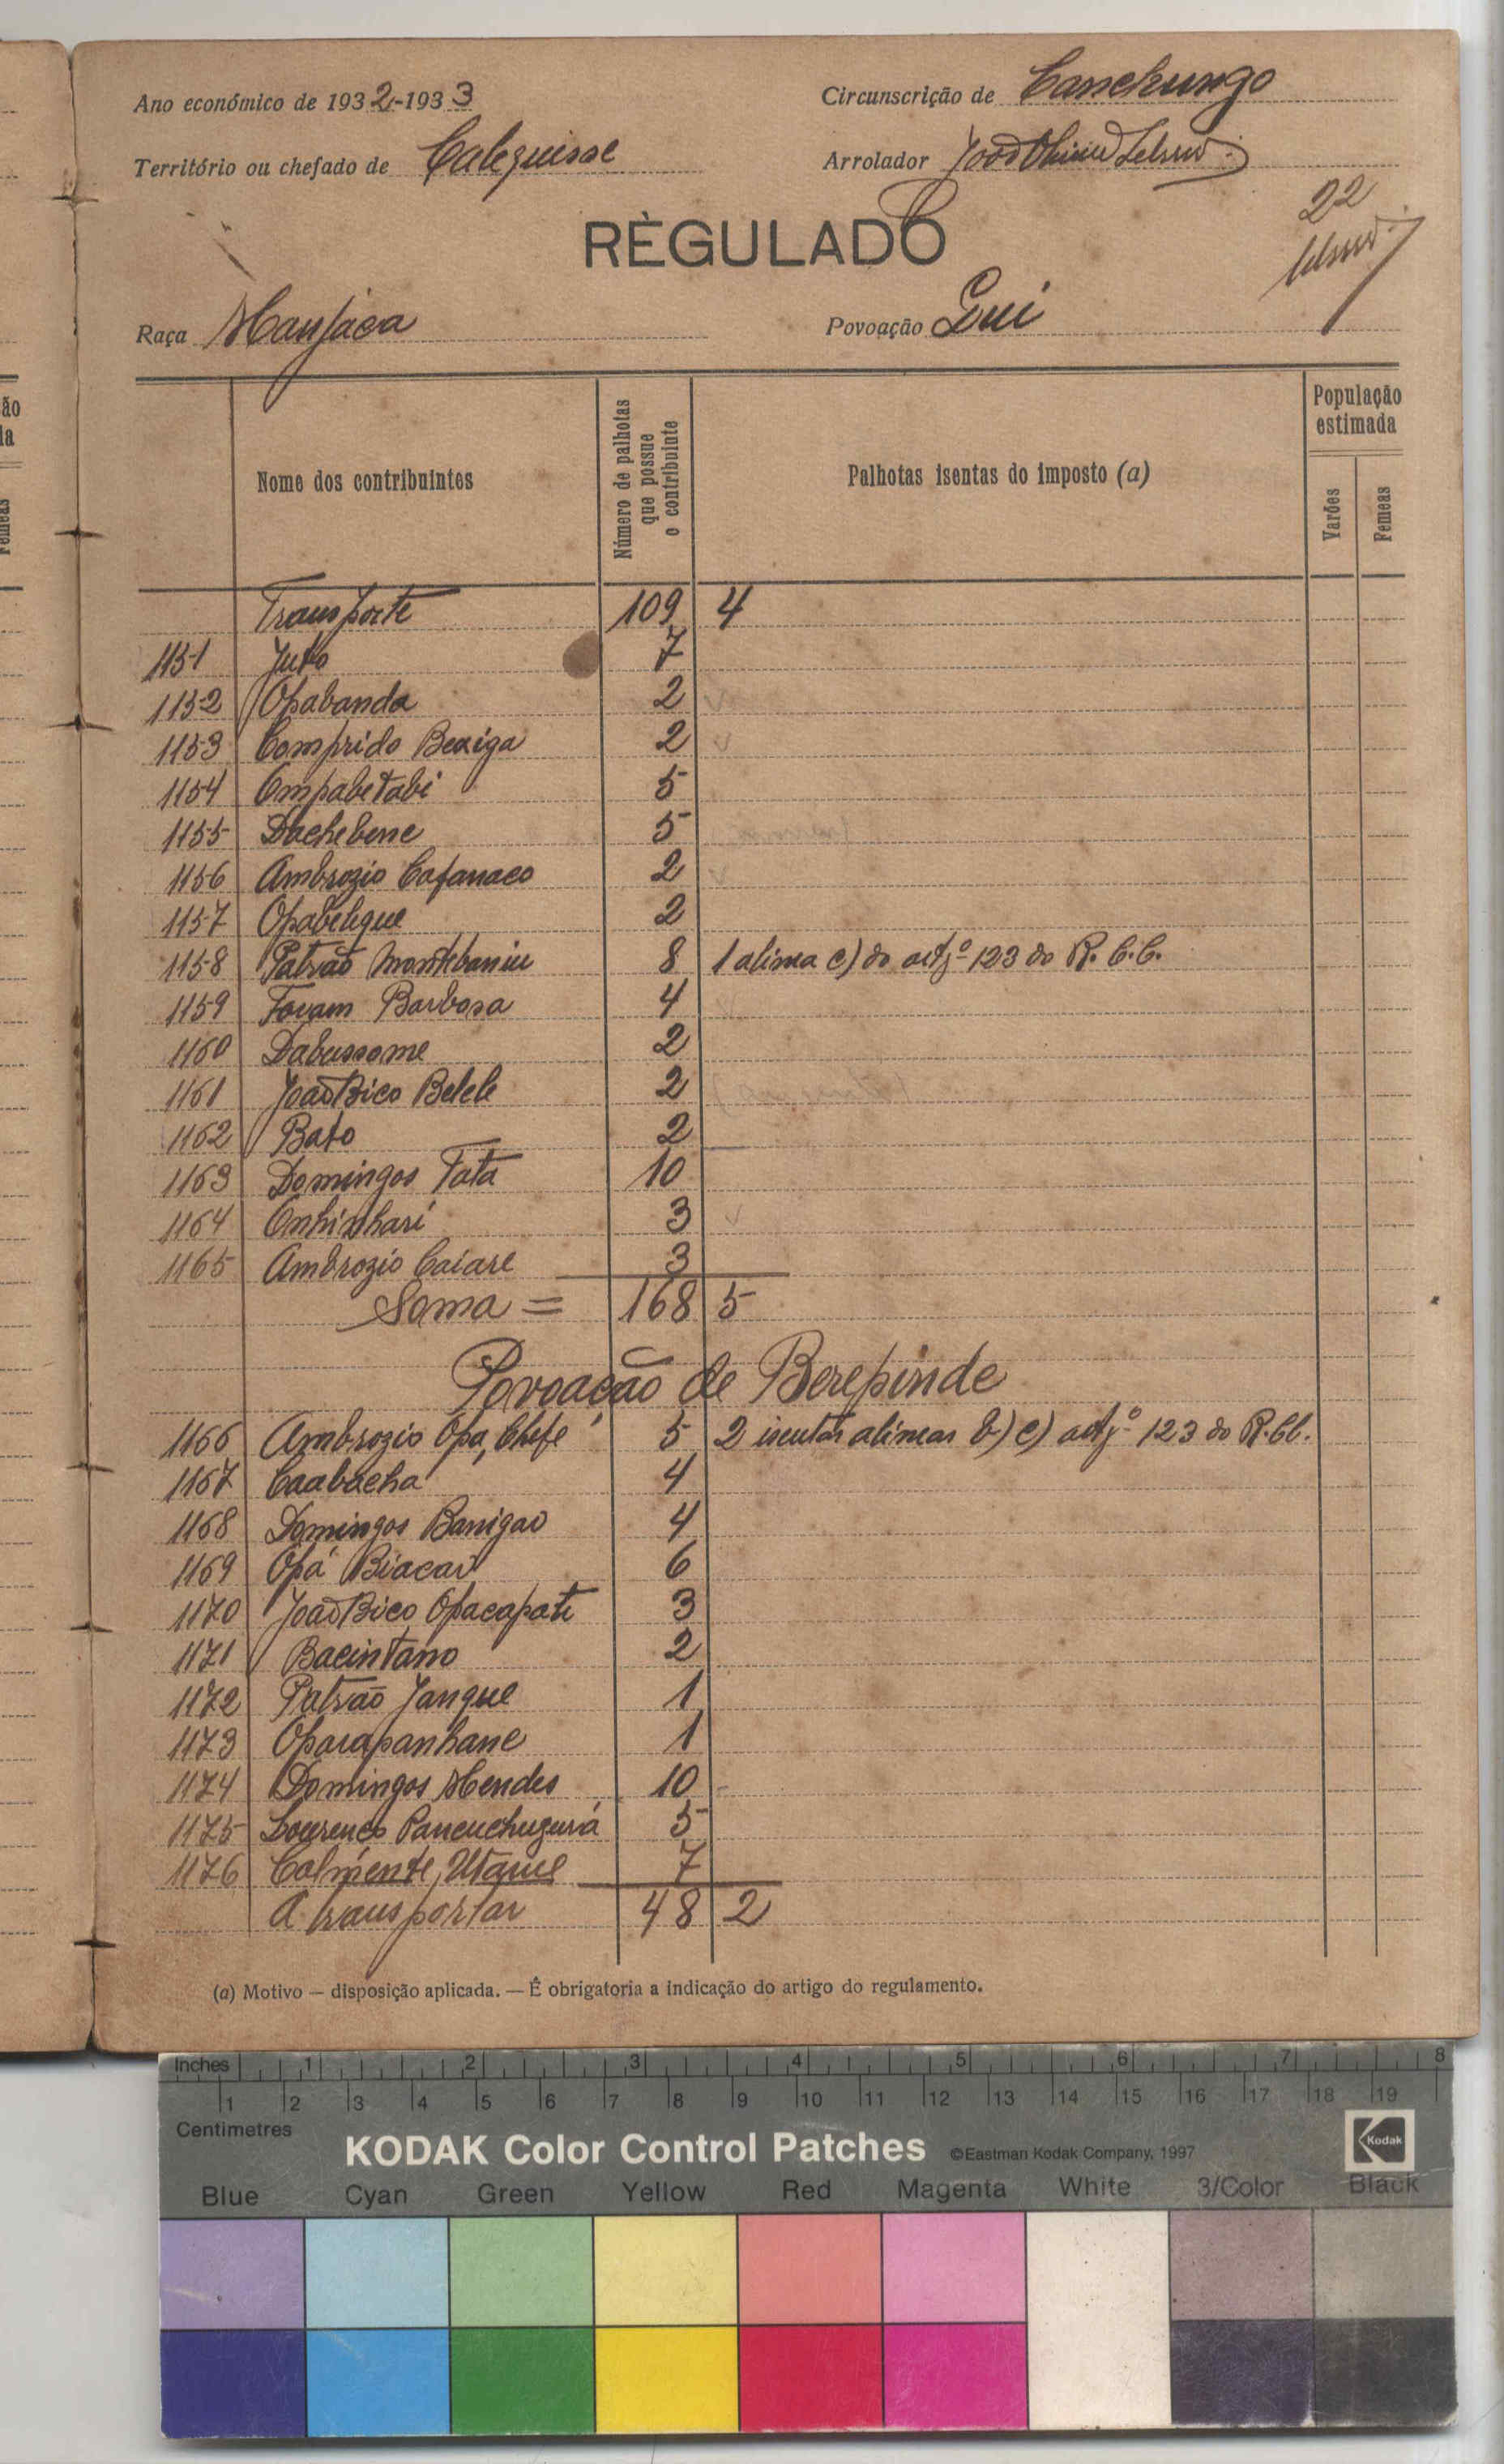 Ano económico de 1932-1933
Circunscrição de Canchungo
Território ou chefado de Calequisse
Arrolador João
22
REGULADO
Raça Manjaca
Povoação Gui
Nome dos contribuintes
Número de palhotas que possue o contribuinte
Palhotas isentas do imposto (a)
População estimada
Varões
Femeas
Transporte 109 4
1151 Juto 7
1152 Opabanda 2
1153 Comprido Bexiga 2
1154 Ompabetabi 5
1155 Dachebene 5
1156 Ambrozio Cafanaco 2
1157 Opabeleque 2
1158 Patrão 8 1 alinea c) do artgº 123 do R.C.C.
1159 Tovam Barbosa 4
1160 Dabussame 2
1161 João Bico Belele 2
1162 Bato 2
1163 Domingos Tata 10
1164 Onhinhari 3
1165 Ambrozio Caiare 3
Soma = 168 5
Povoação de Berepinde
1166 Ambrozio Opa, Chefe 5 2 isentas alineas b) c) artgº 123 do R.C.C.
1167 Caabacha 4
1168 Domingos Banigao 4
1169 Opá Biacar 6
1170 João Bico Opacapate 3
1171 Bacintano 2
1172 Patrão Janque 1
1173 Oparapanhane 1
1174 Domingos Mendes 10
1175 Lourenço Pancuchugurá 5
1176 Calmente, Utaque 7
A transportar 48 2
(a) Motivo — disposição aplicada. — É obrigatoria a indicação do artigo do regulamento.
Inches 1 2 3 4 5 6 7 8
1 2 3 4 5 6 7 8 9 10 11 12 13 14 15 16 17 18 19
Centimetres
KODAK Color Control Patches ©Eastman Kodak Company, 1997 Kodak
Blue Cyan Green Yellow Red Magenta White 3/Color Black